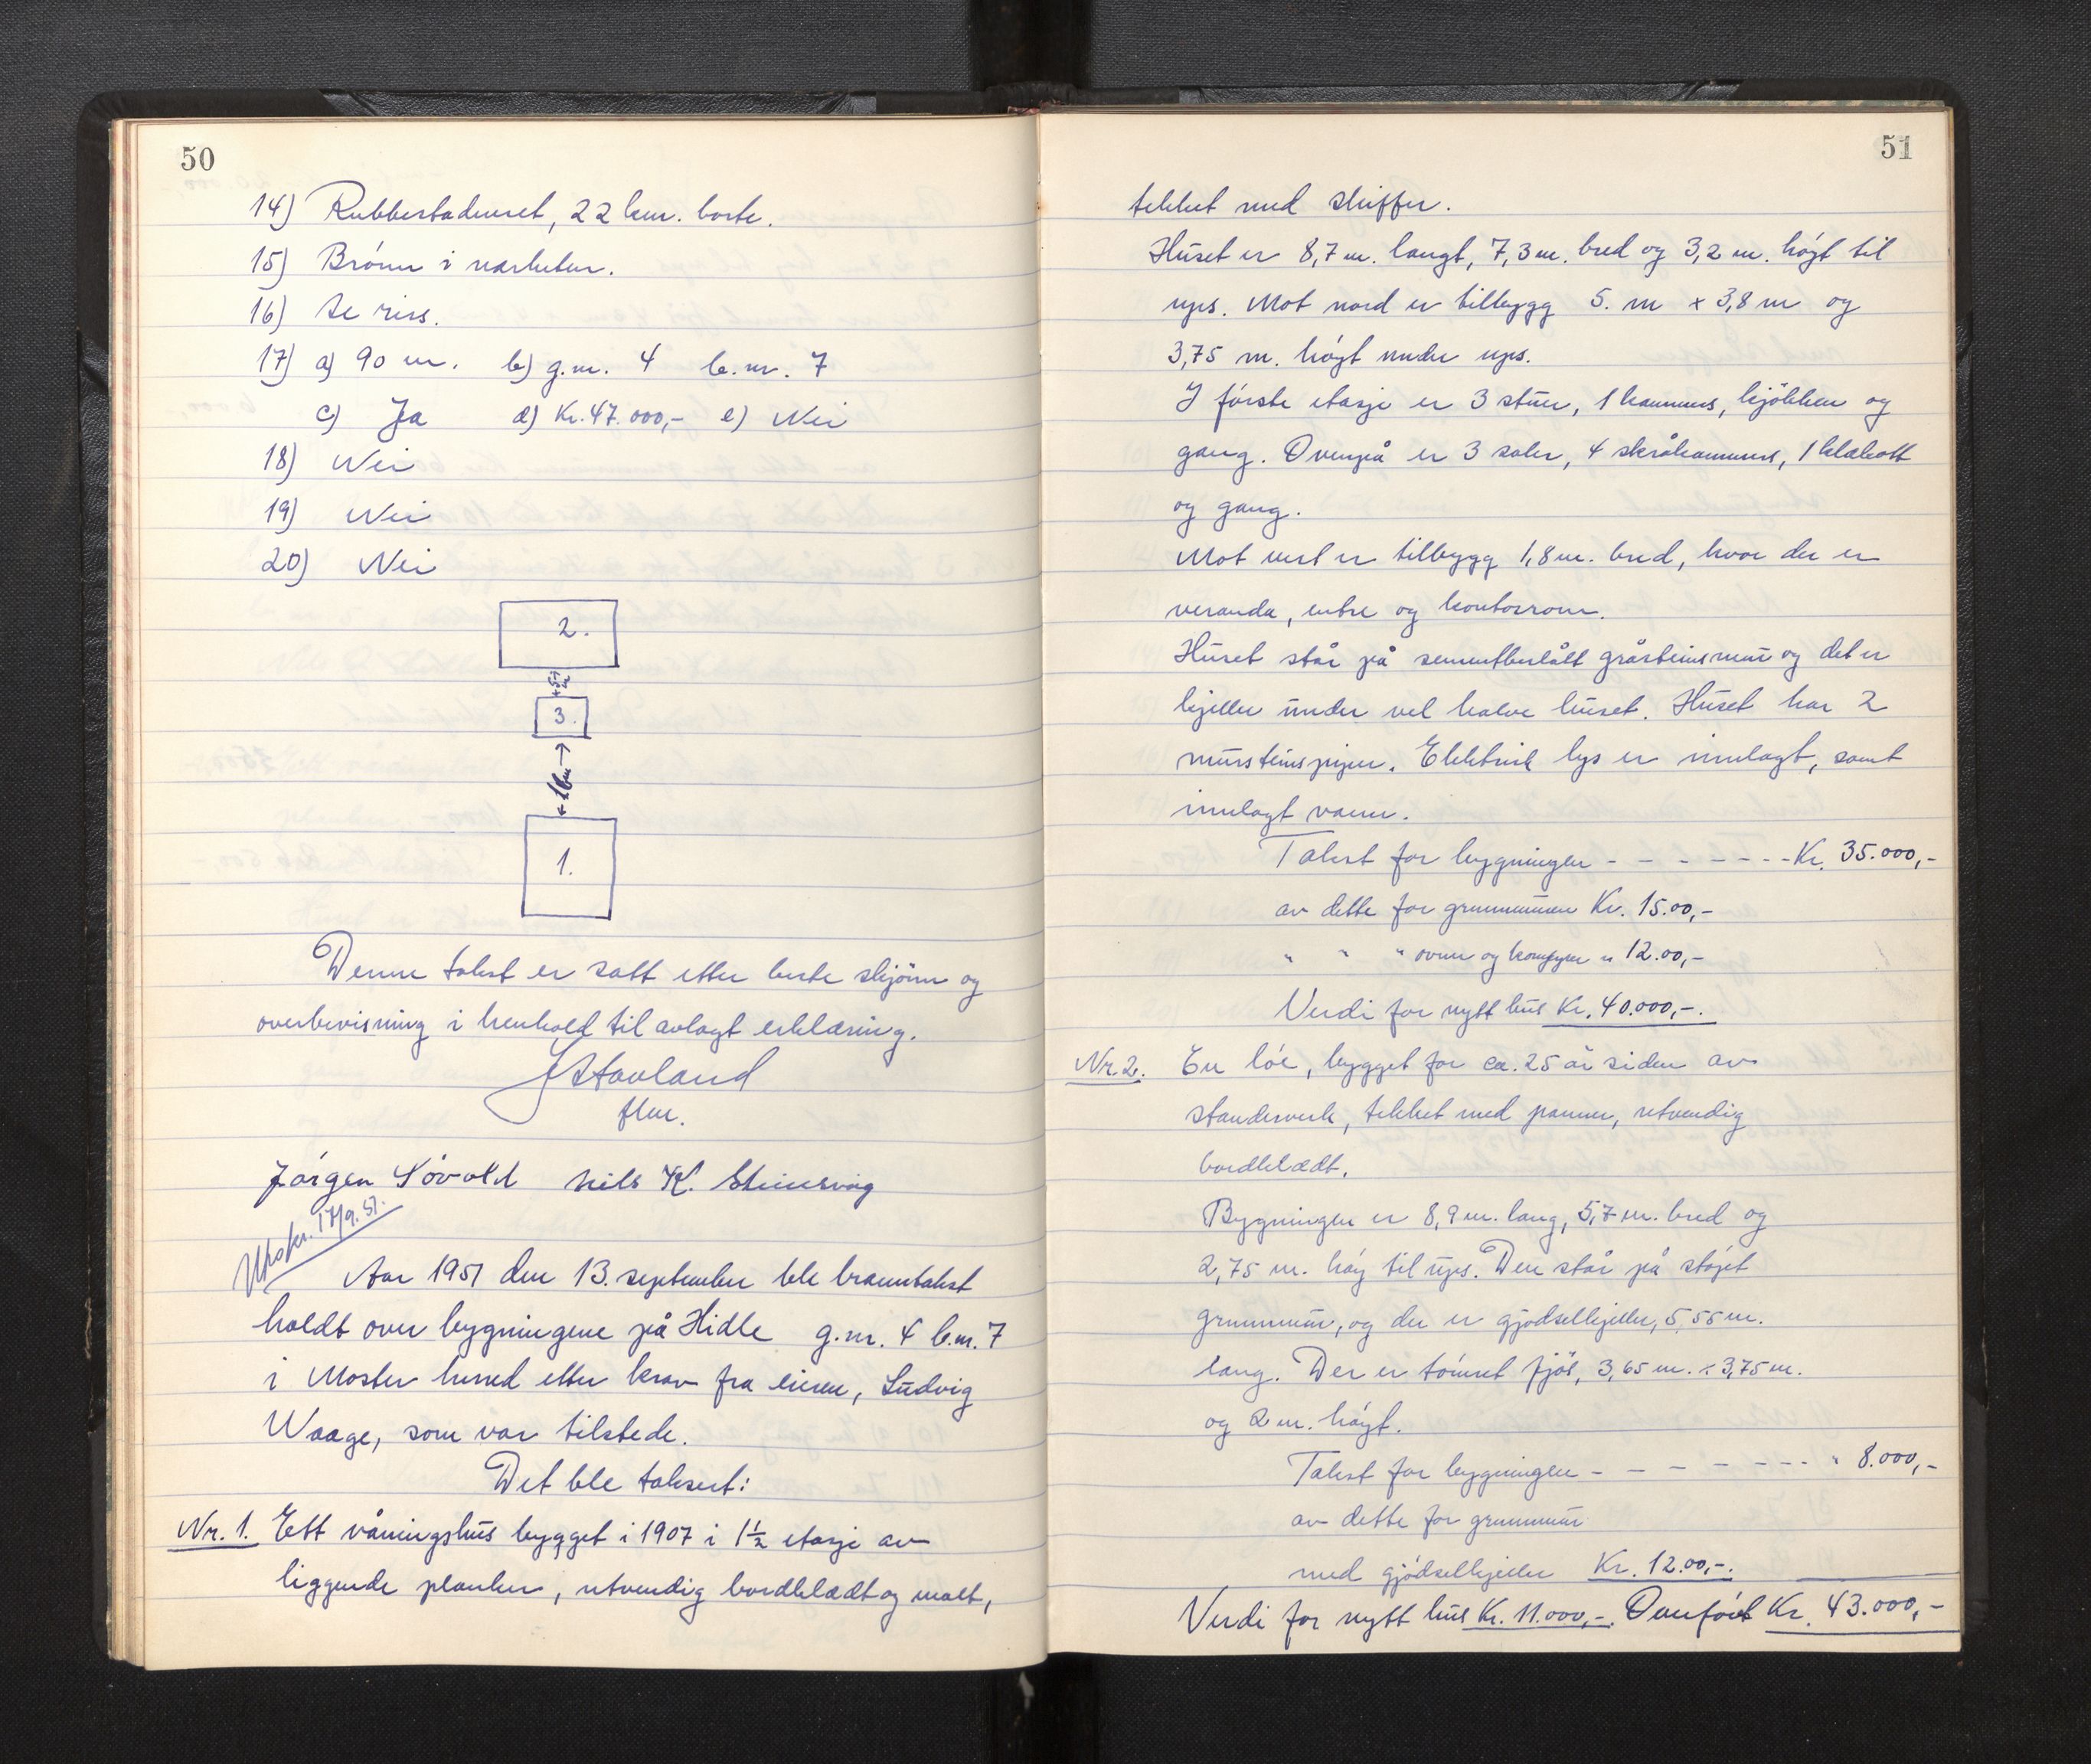 50
14) Rubbestadneset, 22 km. borte.
15) Brönn i nærheten.
16) Se riss.
17) a) 90 m. b) g.nr. 4 b.nr. 7
c) Ja d) Kr. 47.000,- e) Nei
18) Nei
19) Nei
20) Nei
2.
3.
16m
1.
Denne takst er satt etter beste skjönn og
overbevisning i henhold til avlagt erklæring.
J Stavland
flm.
Jörgen Lövold Nils K. Steinsvåg
Utskr. 17/9.51.
Aar 1951 den 13. september ble branntakst
holdt over bygningene på Hidle g.nr. 4 b.nr. 7
i Moster herred etter krav fra eieren, Ludvig
Waage, som var tilstede.
Det ble taksert:
Nr. 1. Ett våningshus bygget i 1907 i 1½ etasje av
liggende planker, utvendig bordklædt og malt,
51
tekket med skiffer.
Huset er 8,7 m. langt, 7,3 m. bred og 3,2 m. högt til
ups. Mot nord er tilbygg 5. m x 3,8 m og
3,75 m. högt under ups.
I förste etasje er 3 stuer, 1 kammers, kjökken og
gang. Ovenpå er 3 saler, 4 skråkammers, 1 klækott
og gang.
Mot vest er tilbygg 1,8 m. bred, hvor der er
veranda, entre og kontorrom.
Huset står på sementberlått gråsteinsmur og det er
kjeller under vel halve huset. Huset har 2
mursteinspiper. Elektrisk lys er innlagt, samt
innlagt vann.
Takst for bygningen - - - - - - - Kr. 35.000,-
av dette for grunnmuren Kr. 15.00,-
" " " ovner og komfyrer " 12.00,-
Verdi for nytt hus Kr. 40.000,-.
Nr. 2. En löe, bygget for ca. 25 år siden av
standerverk, tekket med panner, utvendig
bordklædt.
Bygningen er 8,9 m. lang, 5,7 m. bred og
2,75 m. höy til ups. Den står på stöpt
grunnmur, og der er gjödselkjeller, 5,55 m.
lang. Der er tömret fjös, 3,65 m. x 3,75 m.
og 2 m. högt.
Takst for bygningen - - - - - - - " 8.000,-
av dette for grunnmur
med gjödselkjeller Kr. 12.00,-.
Verdi for nytt hus Kr. 11.000,-. Overfört Kr. 43.000,-